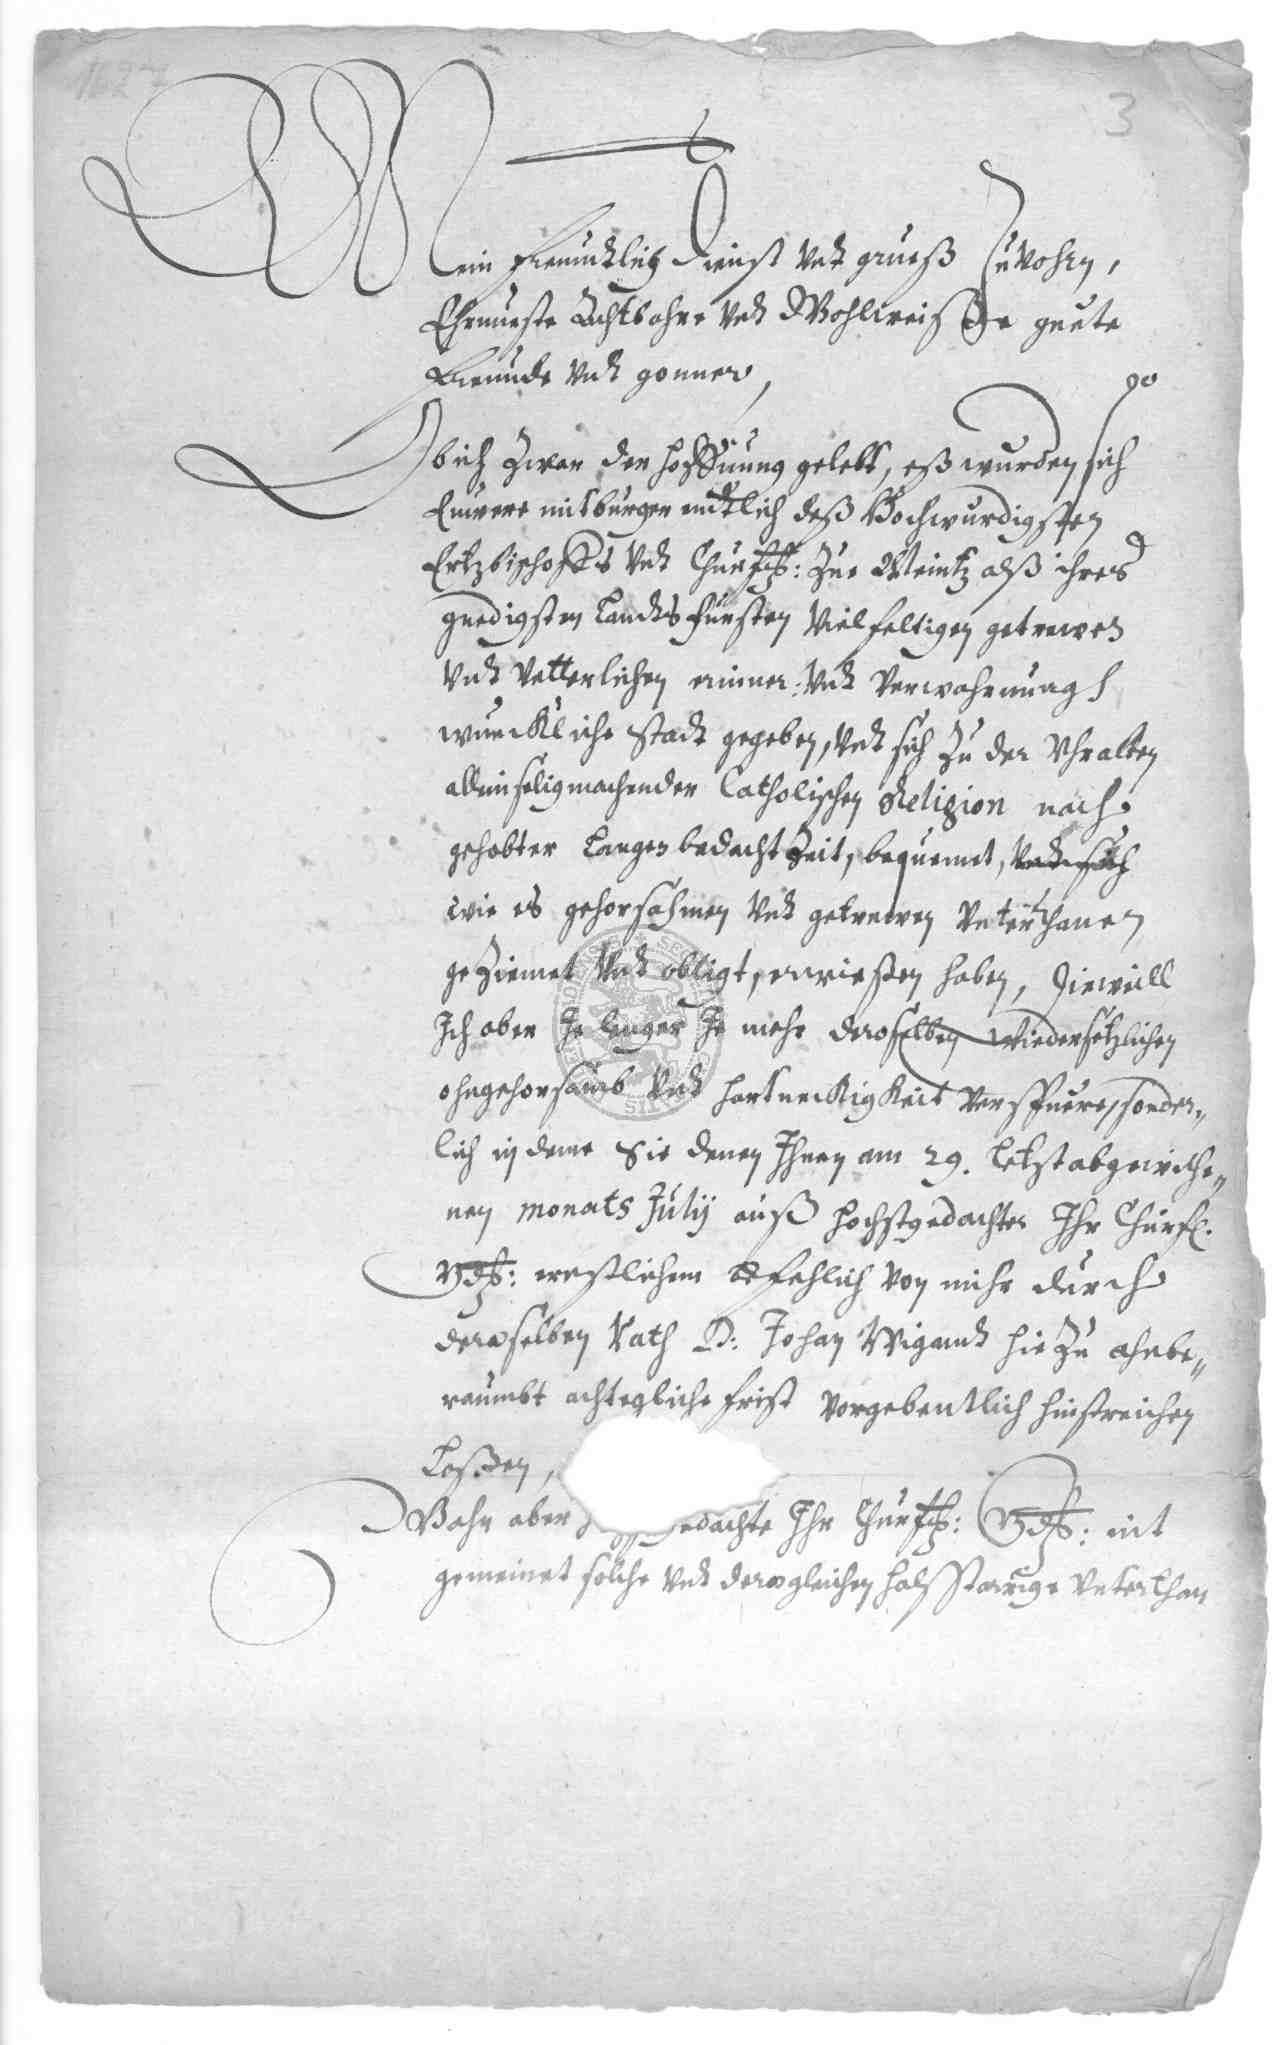 1627
3
Mein freundtlich Dienst vndt grueß Zuvohrn,
Ehrnueste Achtbahre vndt Wohlweisse guete
Freunde vndt gonner,
Ob ich zwar der hoffnung gelebt, eß wurden sich
Euwere mitburger endtlich deß Hochwurdigsten
Ertzbischoffs vndt Churfl: Zue Meintz alß ihres
gnedigsten Landts fursten vielfeltigen getrewen
vndt Vetterlichen erinner: vndt verwahrnung
wurckliche stadt gegeben, vndt sich zu der vhralten
alleinseligmachender Catholischen Religion nach
gehabter langer bedacht Zeit, bequemet, vndt sich
wie es gehorsahmen vndt getrewen Vnterthanen
geziemet vndt obligt, erwießen haben, Dieweill
Ich aber Je lenger Je mehr deroselben wiedersetzlichen
ohngehorsamb vndt hartneckigkeit verspuere, sonder„
lich in deme Sie denen Ihnen am 29. letzst abgewiche„
nen monats Julij auß hochstgedachter Ihr Churfl.
Gdh: erstlichem befehlich von mihr durch
deroselben Rath D: Johan Wigandt hie zu ahnbe„
raumbt achtegliche frist vorgebentlich hinstreichen
Laßen,
Wahn aber gedachte Ihr Churfl: Gdh: nit
gemeinet solche vndt deroxgleichen halßstarrige Vnterthan